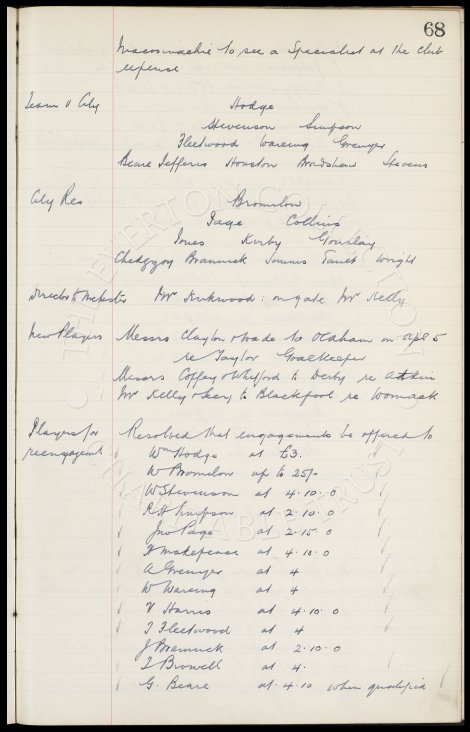 68
Maconnachie to see a Specialist at the club
expense
Team v City
Hodge
Stevenson Simpson
Fleetwood Wareing Grenyer
Beare Jefferis Houston Bradshaw Stevens
City Res
Bromilow
Page Collins
Jones Kirby Gourlay
Chedgzoy Brannick Simms Wright
Director to
Mr Kirkwood : on gate Mr Kelly
New Players
Messrs Clayton & Wade to Oldham on Apl 5
re Taylor Goalkeeper
Messrs Coffey & Whitford to Derby re Atkin
Mr Kelly & to Blackpool re Womack
Players for
reengagemt
Resolved that engagements be offered to
Wm Hodge at £3.
W Bromilow up to 25/-
W Stevenson at 4.10.0
R H Simpson at 2.10.0
Jno Page at 2.15.0
H Makepeace at 4.10.0
A Grenyer at 4
W Wareing at 4
V Harris at 4.10.0
T Fleetwood at 4
J Brannick at 2.10.0
T Browell at 4.
G. Beare at 4.10 when qualified
THE EVERTON COLLECTION CHARITABLE TRUST